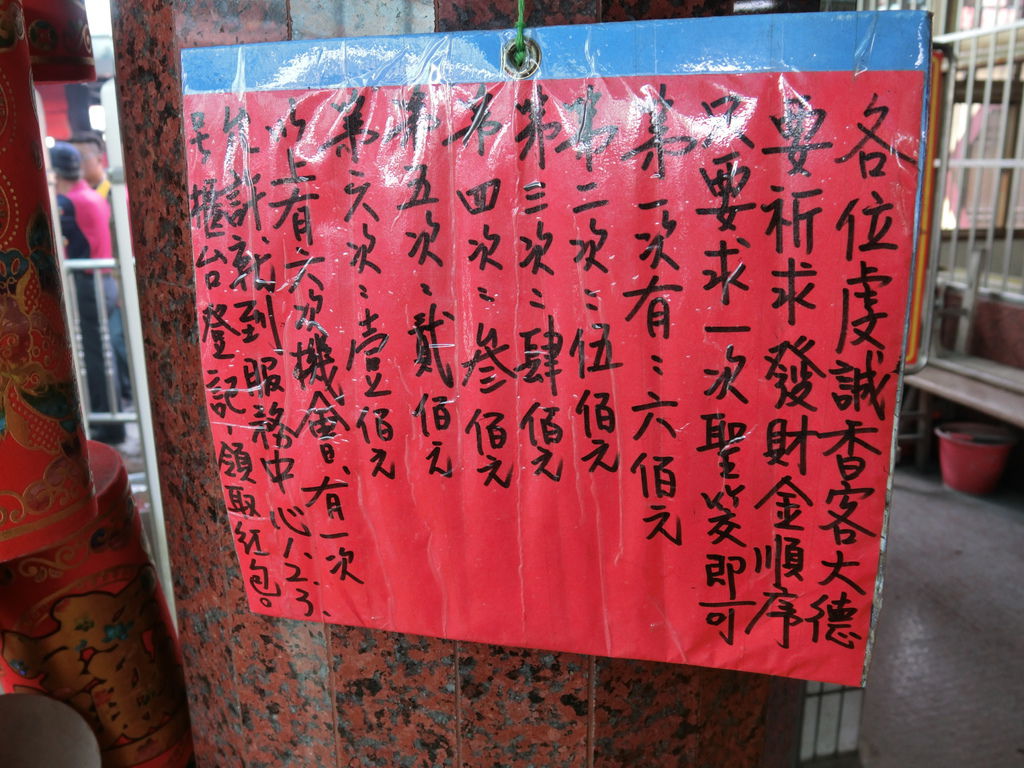 各位虔誠香客大德
要祈求發財金順序
只要求一次聖筊即可
第一次有：六佰元
第二次：伍佰元
第三次：肆佰元
第四次：參佰元
第五次：貳佰元
第六次：壹佰元
以上有六次機會、有一次
允許就到服務中心1、2、3、
號櫃台登記、領取紅包。